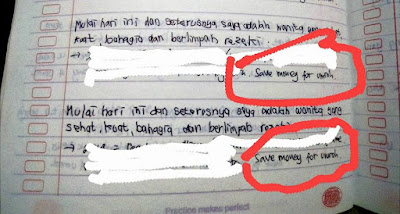 Mulai hari ini dan seterusnya saya adalah wanita yang
kuat bahagia dan berlimpah rezeki.
Save money for umroh
Mulai hari ini dan seterusnya saya adalah wanita yang
sehat, kuat, bahagia dan berlimpah
Save money for umroh
Practice makes perfect